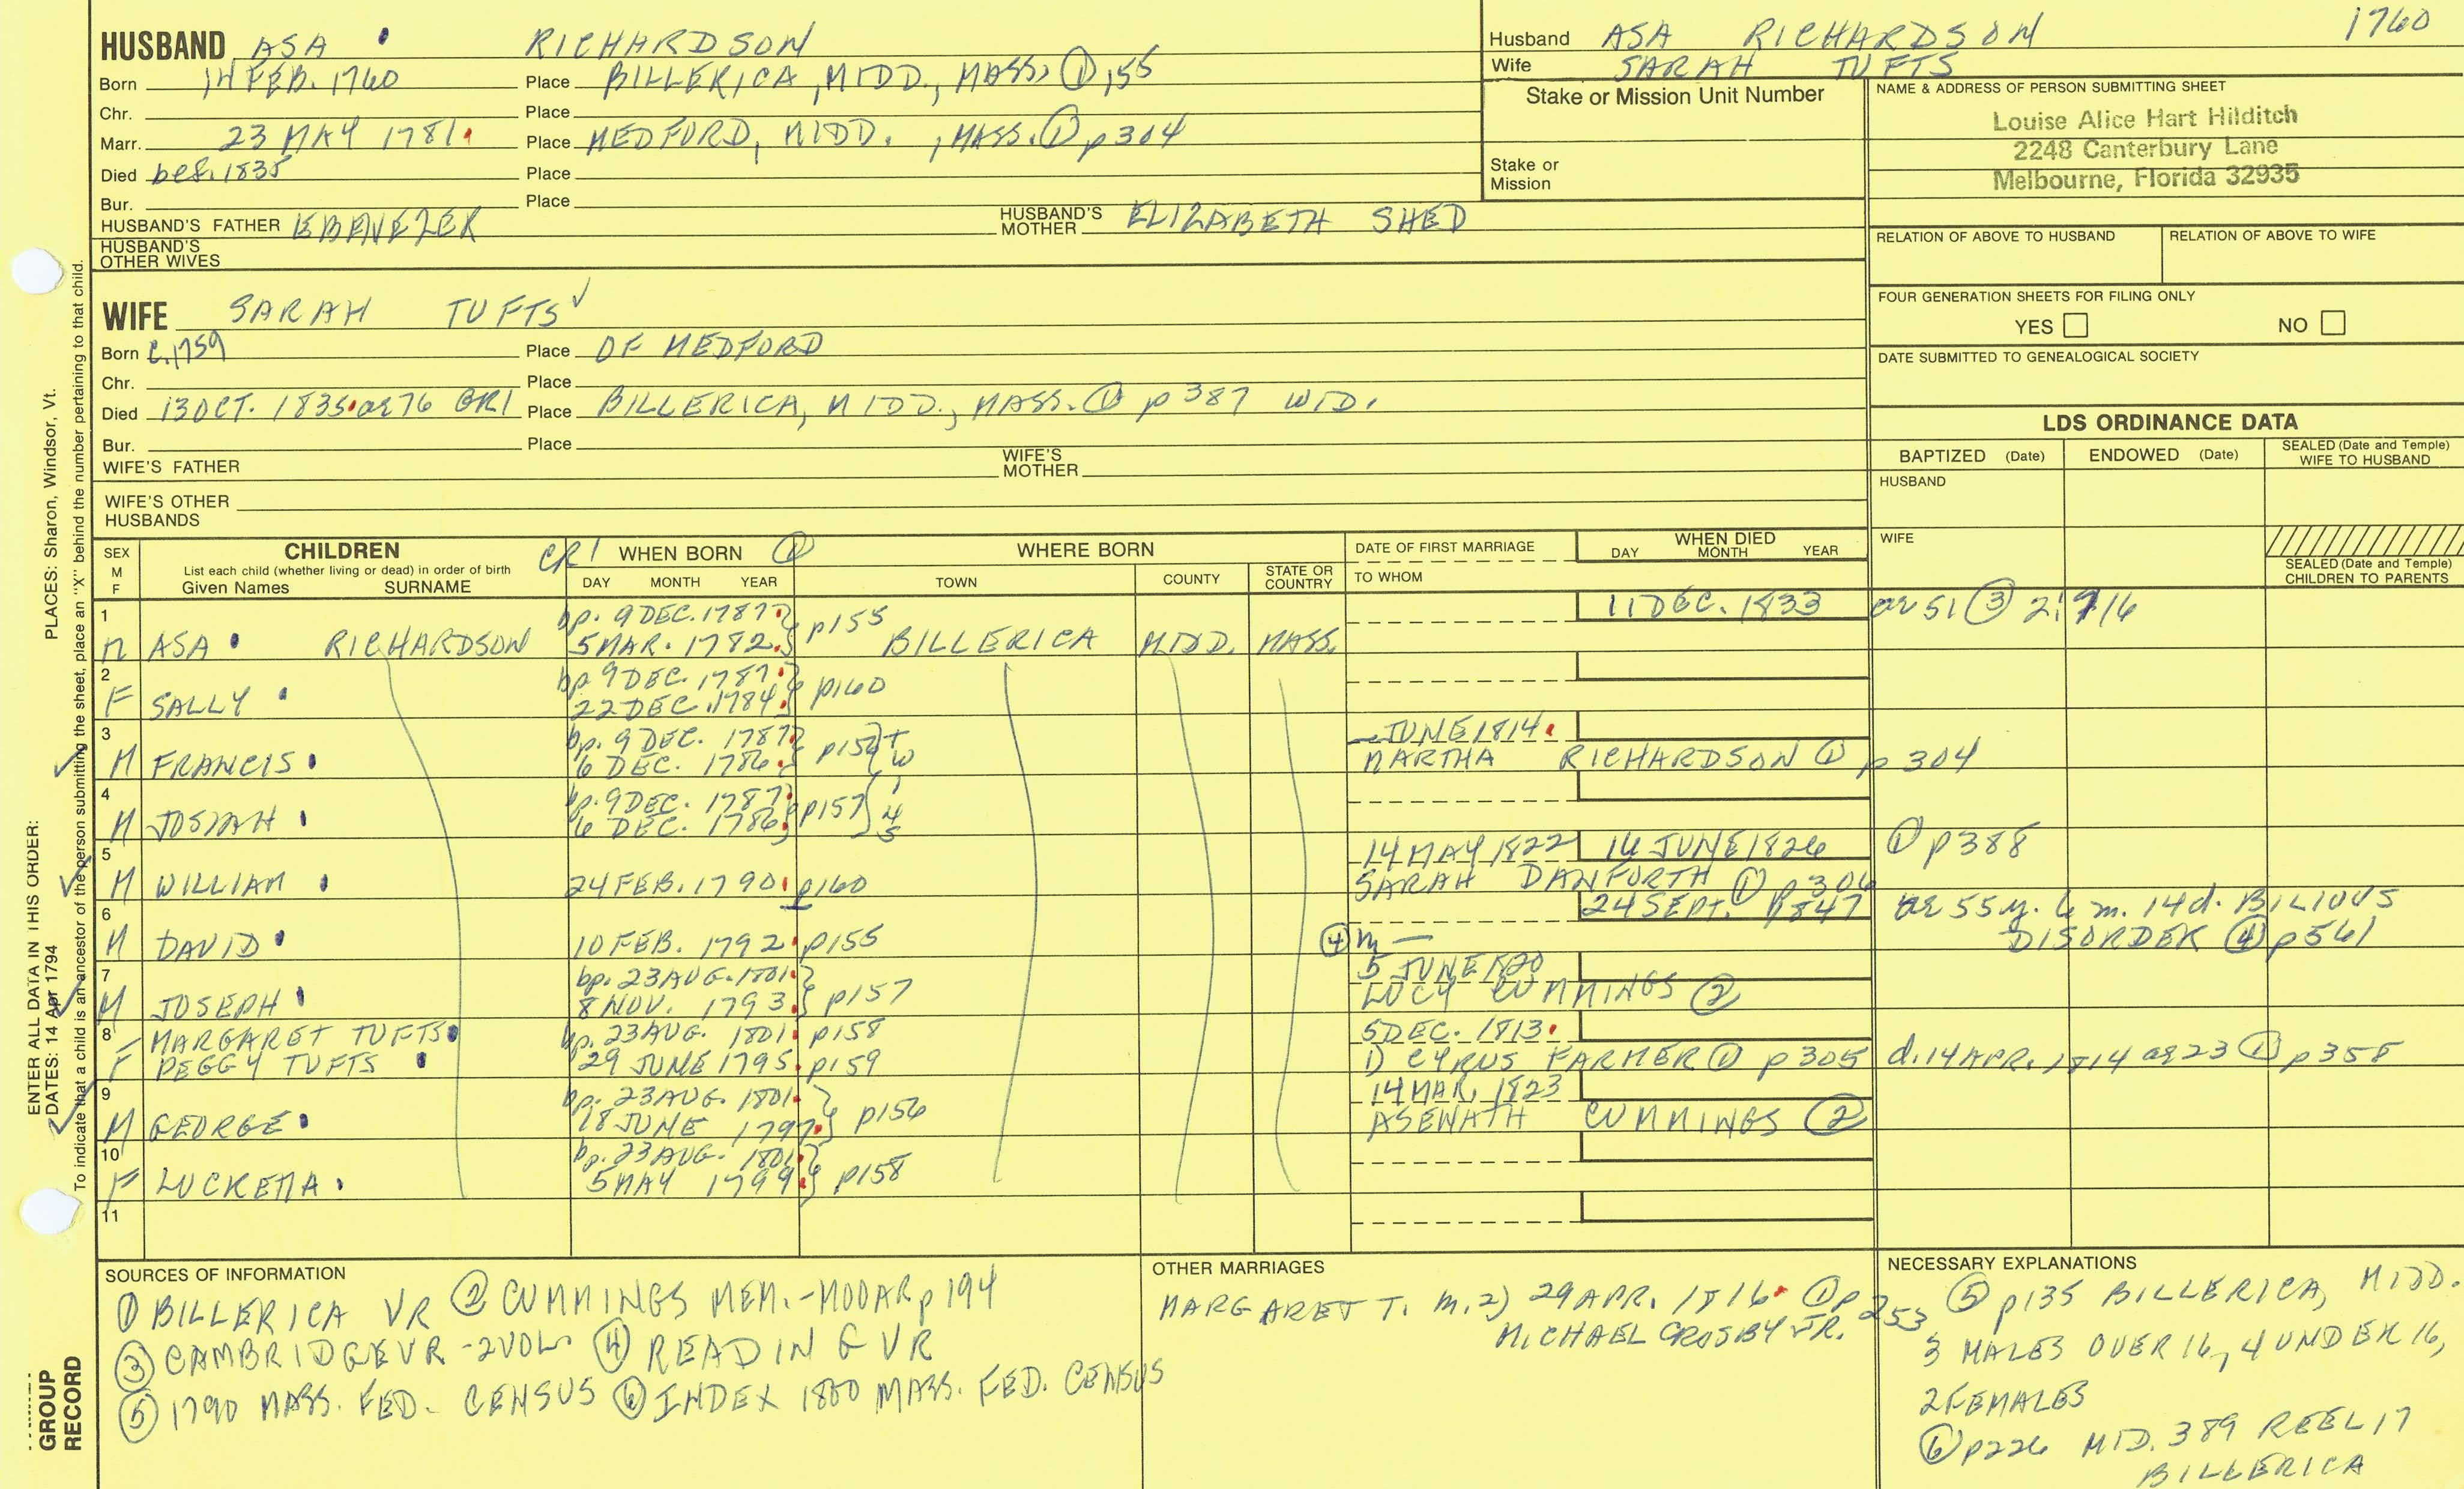 HUSBAND ASA RICHARDSON
Born 14 FEB. 1760 Place BILLERICA, MIDD., MASS. ① 155
Chr. Place
Marr. 23 MAY 1781. Place MEDFORD, MIDD., MASS. ① p304
Died bef. 1835 Place
Bur. Place
HUSBAND'S FATHER EBENEZER HUSBAND'S MOTHER ELIZABETH SHED
HUSBAND'S OTHER WIVES
Husband ASA RICHARDSON 1760
Wife SARAH TUFTS
Stake or Mission Unit Number
Stake or Mission
NAME & ADDRESS OF PERSON SUBMITTING SHEET
Louise Alice Hart Hilditch
2248 Canterbury Lane
Melbourne, Florida 32935
RELATION OF ABOVE TO HUSBAND RELATION OF ABOVE TO WIFE
FOUR GENERATION SHEETS FOR FILING ONLY
YES NO
DATE SUBMITTED TO GENEALOGICAL SOCIETY
WIFE SARAH TUFTS ✓
Born c.1759 Place OF MEDFORD
Chr. Place
Died 13 OCT. 1835. ae 76 GR1 Place BILLERICA, MIDD., MASS. ① p387 WID.
Bur. Place
WIFE'S FATHER WIFE'S MOTHER
WIFE'S OTHER HUSBANDS
LDS ORDINANCE DATA
BAPTIZED (Date) ENDOWED (Date) SEALED (Date and Temple) WIFE TO HUSBAND
HUSBAND
WIFE
SEALED (Date and Temple) CHILDREN TO PARENTS
SEX M F
CHILDREN
List each child (whether living or dead) in order of birth
Given Names SURNAME
CR1 WHEN BORN ①
DAY MONTH YEAR
WHERE BORN
TOWN COUNTY STATE OR COUNTRY
DATE OF FIRST MARRIAGE
TO WHOM
WHEN DIED
DAY MONTH YEAR
1 bp. 9 DEC. 1787 p155 11 DEC. 1833 ae 51 ③ 2:716
M ASA RICHARDSON 5 MAR. 1782 BILLERICA MIDD. MASS.
2 bp 9 DEC. 1787
F SALLY 22 DEC. 1784 p160
3 bp. 9 DEC. 1787 — JUNE 1814.
M FRANCIS 6 DEC. 1786 p156 MARTHA RICHARDSON ① p 304
t
w
i
n
s
4 bp. 9 DEC. 1787
M JOSIAH 6 DEC. 1786 p157
5 14 MAY 1822 16 JUNE 1826 ① p388
M WILLIAM 24 FEB. 1790 p160 SARAH DANFORTH ① p306
6 24 SEPT. 1847 ae 55y. 6 m. 14d. BILIOUS
M DAVID 10 FEB. 1792 p155 ④ m — DISORDER ④ p561
7 bp. 23 AUG. 1801 5 JUNE 1820
M JOSEPH 8 NOV. 1793 p157 LUCY CUMMINGS ②
8 MARGARET TUFTS bp. 23 AUG. 1801 p158 5 DEC. 1813.
F PEGGY TUFTS 29 JUNE 1795 p159 1) CYRUS FARMER ① p305 d. 14 APR. 1814 ae 23 ① p358
9 bp. 23 AUG. 1801 14 MAR. 1823
M GEORGE 18 JUNE 1797 p156 ASENATH CUMMINGS ②
10 bp. 23 AUG. 1801
F LUCRETIA 5 MAY 1799 p158
11
SOURCES OF INFORMATION
① BILLERICA VR ② CUMMINGS MEM.-MOOAR p 194
③ CAMBRIDGE VR - 2 VOL ④ READING VR
⑤ 1790 MASS. FED. CENSUS ⑥ INDEX 1800 MASS. FED. CENSUS
OTHER MARRIAGES
MARGARET T. m. 2) 29 APR. 1816. ① p 253
MICHAEL CROSBY JR.
NECESSARY EXPLANATIONS
⑤ p135 BILLERICA, MIDD.
3 MALES OVER 16, 4 UNDER 16,
2 FEMALES
⑥ p226 MID. 389 REEL 17
BILLERICA
ENTER ALL DATA IN THIS ORDER:
DATES: 14 Apr 1794 PLACES: Sharon, Windsor, Vt.
To indicate that a child is an ancestor of the person submitting the sheet, place an "X" behind the number pertaining to that child.
GROUP
RECORD